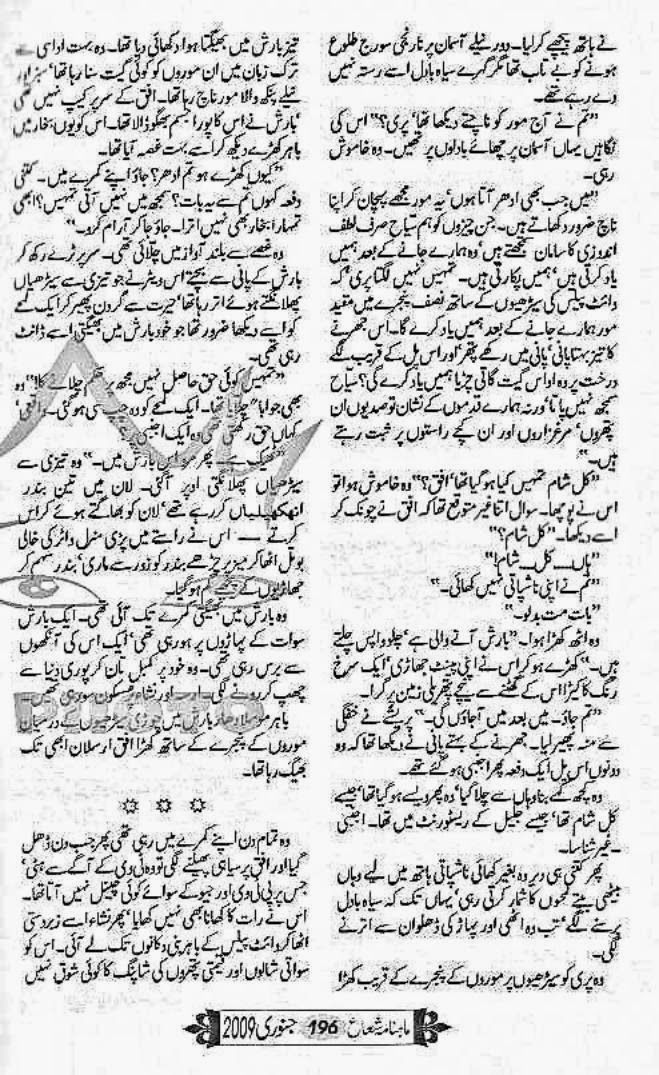 نے ہاتھ پیچھے کرلیا۔ دور نیلے آسمان پر نارنجی سورج طلوع
ہونے کو بے تاب تھا مگر گہرے سیاہ بادل اسے رستہ نہیں
دے رہے تھے۔
”تم نے آج مور کو ناچتے دیکھا تھا‘ پری؟“ اس کی
نگاہیں یہاں آسمان پر چھائے بادلوں پر تھیں۔ وہ خاموش
رہی۔
”میں جب بھی ادھر آتا ہوں‘ یہ مور مجھے پہچان کر اپنا
ناچ ضرور دکھاتے ہیں۔ جن چیزوں کو ہم سیاح صرف لطف
اندوزی کا سامان سمجھتے ہیں‘ وہ ہمارے جانے کے بعد ہمیں
یاد کرتی ہیں‘ ہمیں پکارتی ہیں۔ تمہیں نہیں لگتا پری‘ کہ
وائٹ پیلس کی سیڑھیوں کے ساتھ نصف پنجرے میں مقید
مور ہمارے جانے کے بعد ہمیں یاد کرے گا۔ اس جھرنے
کا تیز بہتا پانی‘ پانی میں رکھے پتھر‘ اور اس پل کے قریب لگے
درخت پر وہ اداس گیت گاتی چڑیا ہمیں یاد کرے گی؟ سیاح
سمجھ نہیں پاتا‘ ورنہ ہمارے قدموں کے نشان تو صدیوں ان
پتھروں‘ مرغزاروں اور ان کچے راستوں پر ثبت رہتے
ہیں۔“
”کل شام تمہیں کیا ہوگیا تھا‘ افق؟“ وہ خاموش ہوا تو
اس نے پوچھا۔ سوال اتنا غیر متوقع تھا کہ افق نے چونک کر
اسے دیکھا۔ ”کل شام؟“
”ہاں۔۔۔ کل۔۔۔ شام!“
”تم نے اپنی ناشپاتی نہیں کھائی۔“
”بات مت بدلو۔“
وہ اٹھ کھڑا ہوا۔ ”بارش آنے والی ہے‘ چلو واپس چلتے
ہیں۔“ کھڑے ہو کر اس نے اپنی جینٹ جھاڑی‘ ایک سرخ
رنگ کا کیڑا اس کے گھٹنے سے نیچے پتھریلی زمین پر گرا۔
”تم جاؤ۔ میں بعد میں آجاؤں گی۔“ پریشے نے خفگی
سے منہ پھیر لیا۔ جھرنے کے بہتے پانی نے دیکھا تھا کہ وہ
دونوں اس پل ایک دفعہ پھر اجنبی ہوگئے تھے۔
وہ کچھ کہے بنا وہاں سے چلا گیا‘ وہ پھر ویسے ہوگیا تھا‘ جیسے
کل شام تھا‘ جیسے جلیل کے ریسٹورنٹ میں تھا۔ اجنبی
۔غیر شناسا۔
پھر کتنی ہی دیر وہ بغیر کھائی ناشپاتی ہاتھ میں لیے وہاں
بیٹھی بیتے لمحوں کا شمار کرتی رہی‘ یہاں تک کہ سیاہ بادل
برسنے لگے‘ تب وہ اٹھی اور پہاڑ کی ڈھلوان سے اترنے
لگی۔
وہ پری کو سیڑھیوں پر موروں کے پنجرے کے قریب کھڑا
تیز بارش میں بھیگتا ہوا دکھائی دیا تھا۔ وہ بہت اداسی سے
ترک زبان میں ان موروں کو کوئی گیت سنا رہا تھا‘ سبز اور
نیلے پنکھ والا مور ناچ رہا تھا۔ افق کے سر پر کیپ نہیں تھی
‘بارش نے اس کا پورا جسم بھگو ڈالا تھا۔ اس کو یوں بخار میں
باہر کھڑے دیکھ کر اسے بہت غصہ آیا تھا۔
”کیوں کھڑے ہو تم ادھر؟ جاؤ اپنے کمرے میں۔ کتنی
دفعہ کہوں تم سے یہ بات؟ سمجھ میں نہیں آتی تمہیں؟ ابھی
تمہارا بخار بھی نہیں اترا۔ جاؤ جا کر آرام کرو۔“
وہ غصے سے بلند آواز میں چلائی تھی۔ سر پر ٹرے رکھ کر
بارش کے پانی سے بچتے اس ویٹر نے جو تیزی سے سیڑھیاں
پھلانگتے ہوئے اتر رہا تھا‘ حیرت سے گردن پھیر کر ایک لمحے
کو اسے دیکھا ضرور تھا جو خود بارش میں بھیگتی اسے ڈانٹ
رہی تھی۔
”تمہیں کوئی حق حاصل نہیں مجھ پر حکم چلانے کا“ وہ
بھی جواباً چلایا تھا۔ ایک لمحے کو وہ چپ سی ہوگئی۔ واقعی‘
کہاں حق رکھتی تھی وہ ایک اجنبی پر؟
”ٹھیک ہے۔ پھر مرو اس بارش میں۔“ وہ تیزی سے
سیڑھیاں پھلانگتی اوپر آگئی۔ لان میں تین بندر
اٹھکھیلیاں کر رہے تھے‘ لان کو بھاگتے ہوئے کراس
کرتے ۔۔ اس نے راستے میں پڑی منرل واٹر کی خالی
بوتل اٹھا کر میز پر چڑھے بندر کو زور سے ماری‘ بندر سہم کر
جھاڑیوں کے پیچھے گم ہوگیا۔
وہ بارش میں بھیگتی کمرے تک آئی تھی۔ ایک بارش
سوات کے پہاڑوں پر ہو رہی تھی‘ ایک اس کی آنکھوں
سے برس رہی تھی۔ وہ خود پر کمبل تان کر پوری دنیا سے
چھپ کر رونے لگی۔ ارسہ اور نشاء پرسکون سو رہی تھیں۔
باہر موسلا دھار بارش میں چوڑی سیڑھیوں کے درمیان
موروں کے پنجرے کے ساتھ کھڑا افق ارسلان ابھی تک
بھیگ رہا تھا۔
☼ ☼ ☼
وہ تمام دن اپنے کمرے میں رہی تھی پھر جب دن ڈھل
گیا اور افق پر سیاہی پھیلنے لگی تو وہ ٹی وی کے آگے سے ہٹی‘
جس پر پی ٹی وی اور جیو کے سوائے کوئی چینل نہیں آتا تھا۔
اس نے رات کا کھانا بھی نہیں کھایا‘ پھر نشاء اسے زبردستی
اٹھا کر وائٹ پیلس کے باہر بنی دکانوں تک لے آئی۔ اس کو
سواتی شالوں اور قیمتی پتھروں کی شاپنگ کا کوئی شوق نہیں
ماہنامہ شعاع 196 جنوری 2009